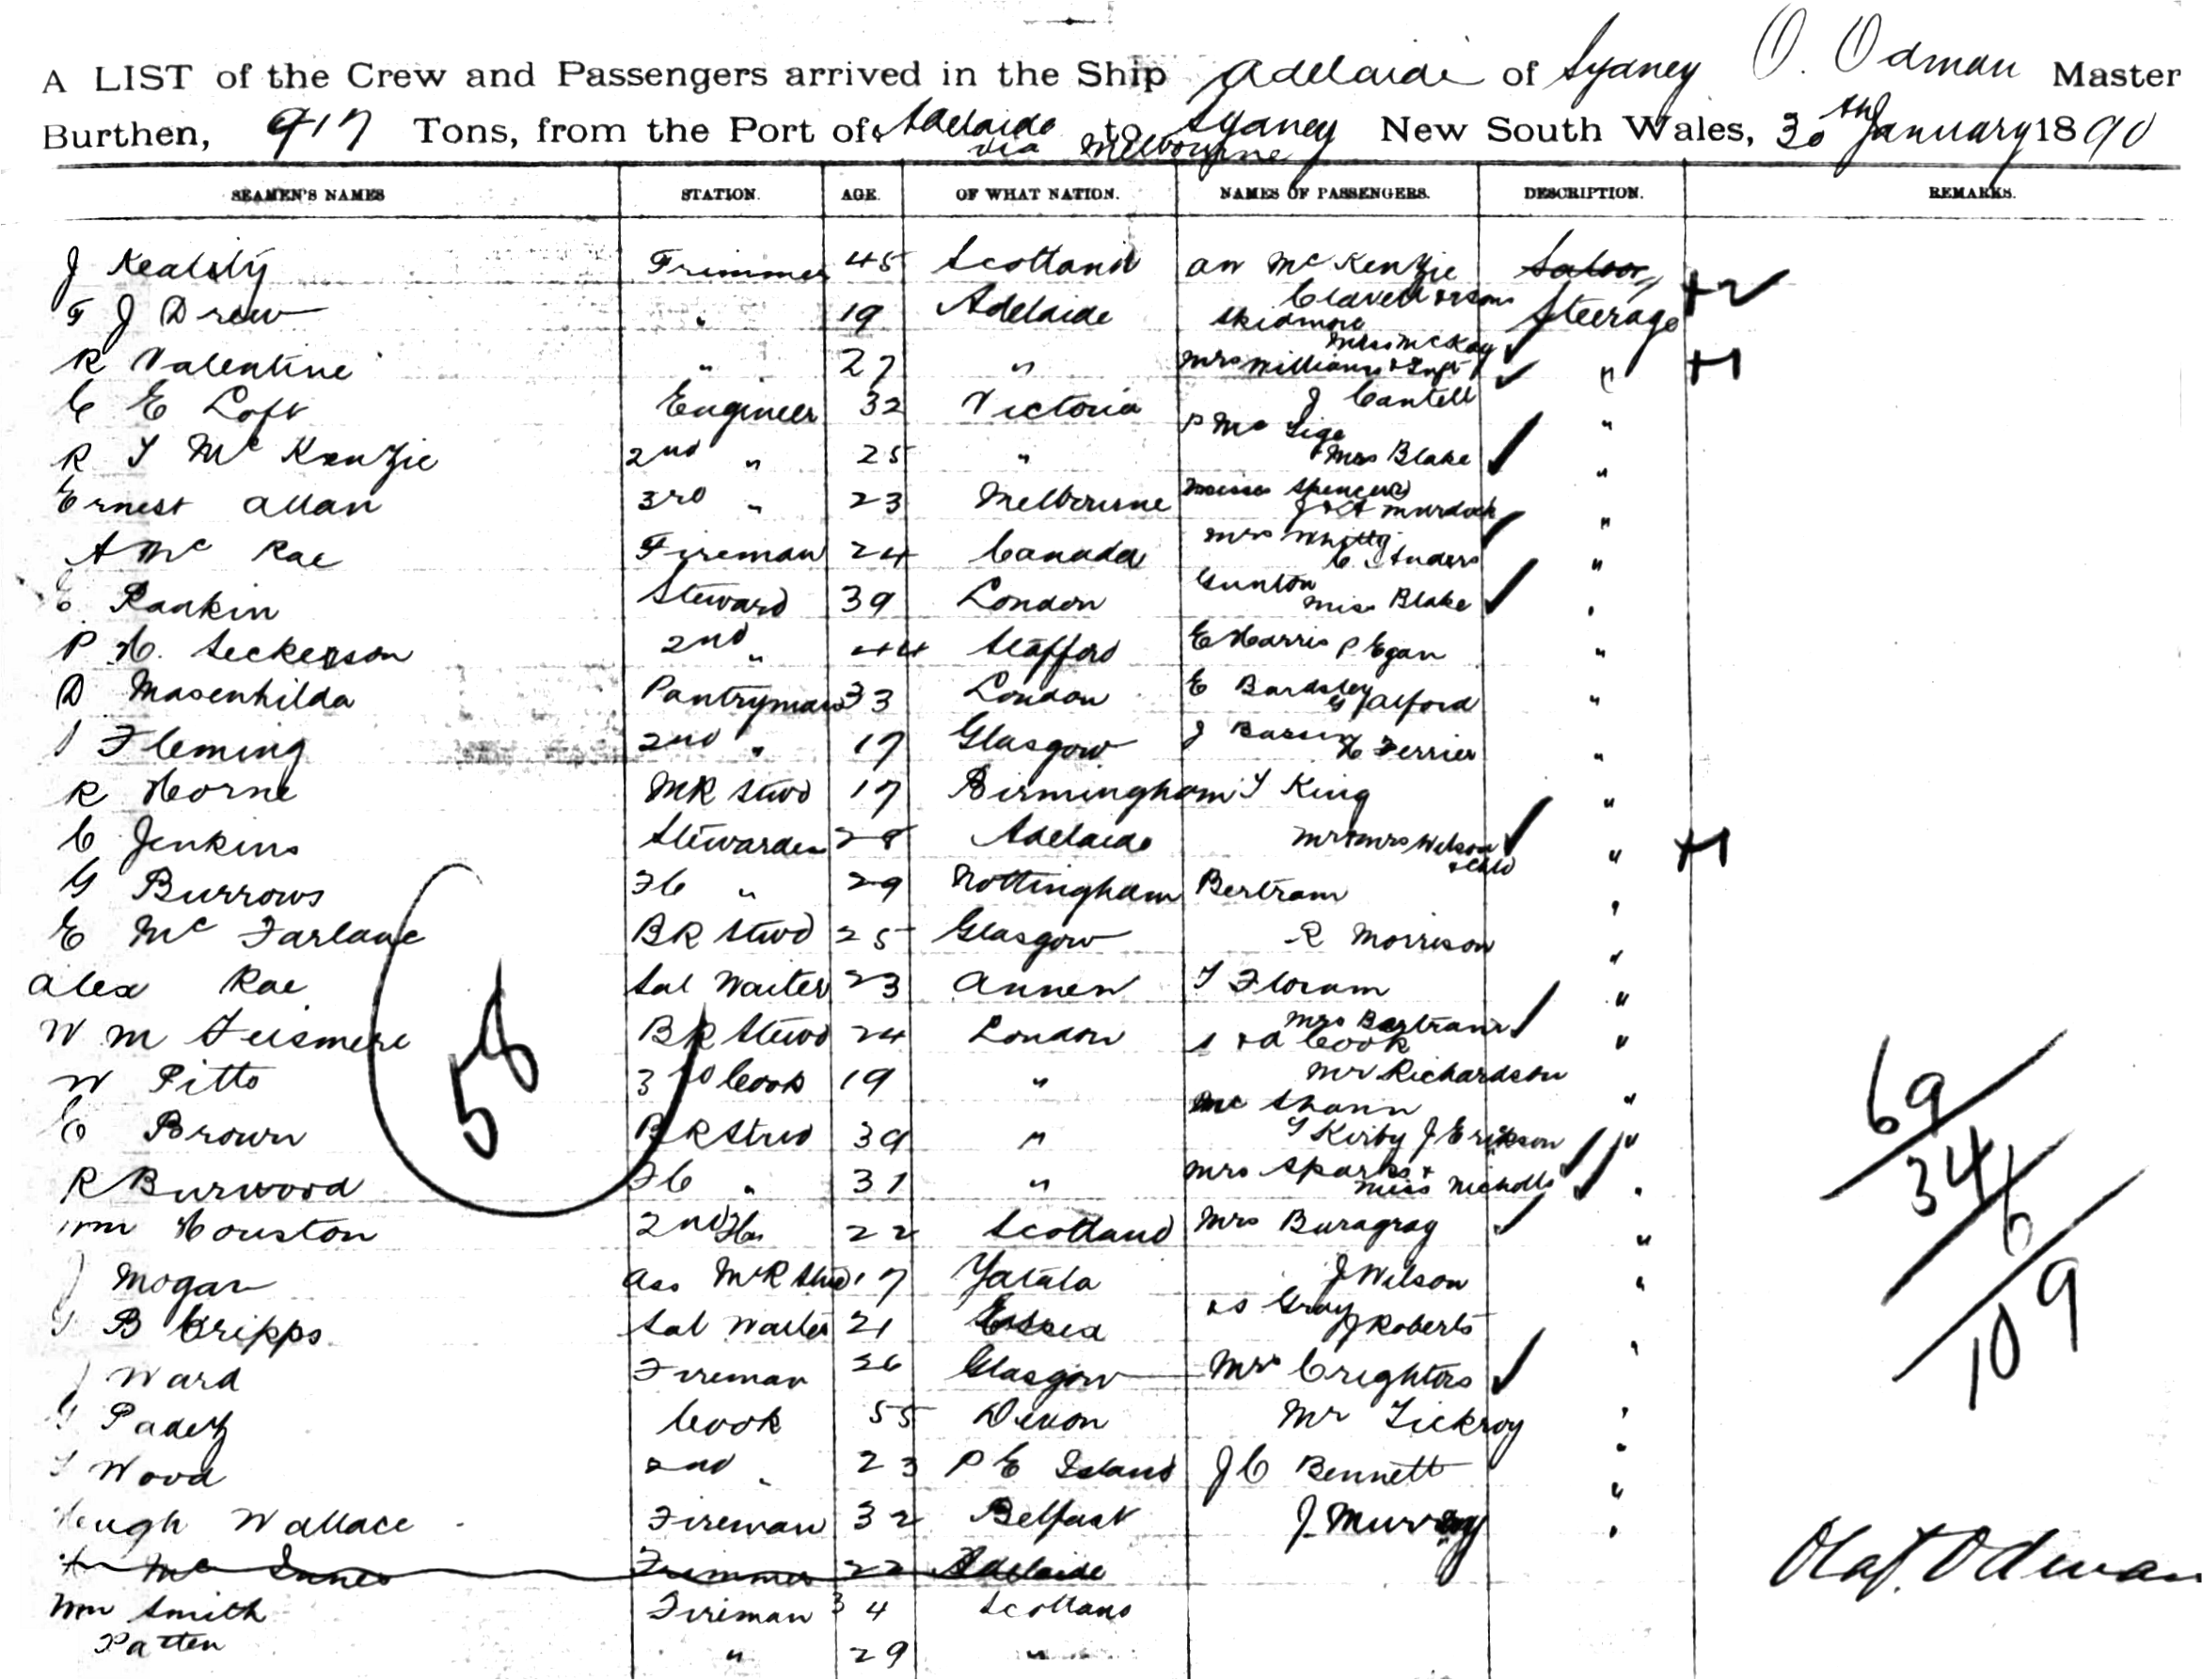 A LIST of the Crew and Passengers arrived in the Ship Adelaide of Sydney O. Odman Master
Burthen, 917 Tons, from the Port of Adelaide to Sydney New South Wales, 30th January 1890
via Melbourne
SEAMEN'S NAMES STATION. AGE. OF WHAT NATION. NAMES OF PASSENGERS. DESCRIPTION. REMARKS.
J Trimmer 45 Scotland McKenzie Saloon +2
F J Drew " 19 Adelaide Skidmore Steerage
Mrs McKay
R Valentine " 27 " Mrs Williams & Inft " +1
C E Loft Engineer 32 Victoria J Cantell "
P Mc
R T McKenzie 2nd " 25 " Mrs Blake "
Ernest Allan 3rd " 23 Melbourne Misses Spencer(2)
J & A Murdoch "
A McRae Fireman 24 Canada Mrs
C "
E Rankin Steward 39 London Gunton
Miss Blake "
P H. Seckerson 2nd " 44 Stafford E Harris P Egan "
D Masenhilda Pantryman 33 London E Bardsley
G Alford "
Fleming 2nd " 17 Glasgow J
H Ferrier "
R Horne MR Stwd 17 Birmingham T King "
C Jenkins Stewardess 28 Adelaide Mr & Mrs Wilson
& Child " +1
G Burrows FC " 29 Nottingham Bertram "
E McFarlane BR Stwd 25 Glasgow R Morrison "
Alex Rae Sal Waiter 23 Annen T Floram "
Mrs Bertram
W M BR Stwd 24 London S & A Cook "
W Pitts 3rd Cook 19 " Mr Richardson "
Mc Shann
E Brown BR Stwd 39 " T Kirby J Erikson "
R Burwood FC " 31 " Mrs Sparks &
Miss Nicholls "
Wm Houston 2nd 22 Scotland Mrs Buragray "
J Mogan Ass MR Stwd 17 Yatala J Wilson "
B Cripps Sal Waiter 21 Essex Gray
J Roberts "
J Ward Fireman 26 Glasgow Mrs Crighton "
G Cook 55 Devon Mr "
T Wood 2nd " 23 P E Island J C Bennett "
Hugh Wallace Fireman 32 Belfast J. Murray "
McInnes Trimmer 22 Adelaide
Wm Smith Fireman 34 Scotland
Patten " 29 "
58
69
34
6
109
Olaf. Odman